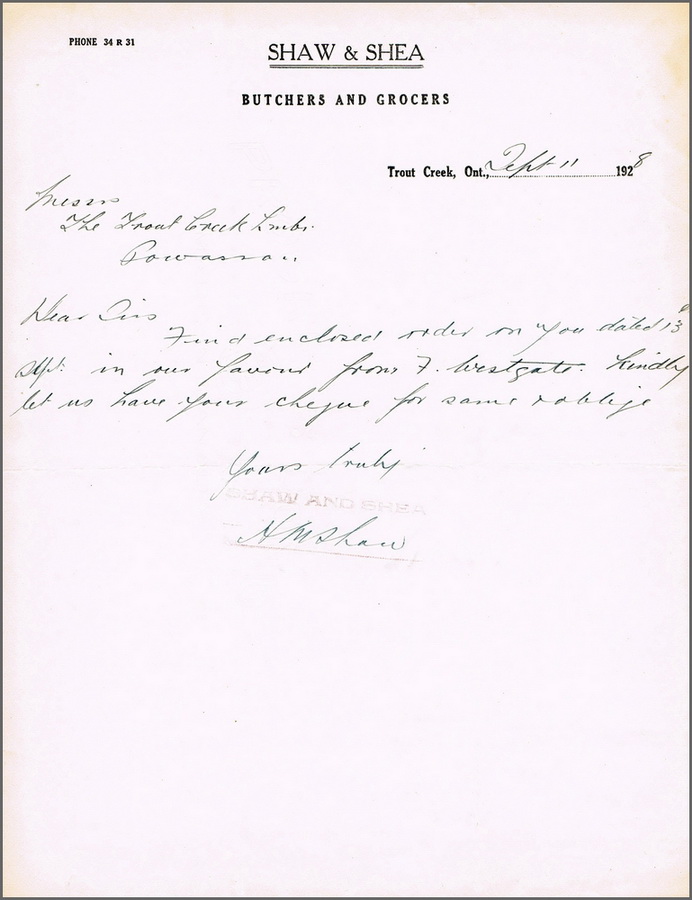 PHONE 34 R 31
SHAW & SHEA
BUTCHERS AND GROCERS
Trout Creek, Ont., Sept 11 1928
Messrs
The Trout Creek Lmbr.
Powassan
Dear Sirs
Find enclosed order on you dated 13
Sept. in our favour from F. Westgate. Kindly
let us have your cheque for same & oblige
Yours truly
SHAW AND SHEA
H M Shaw